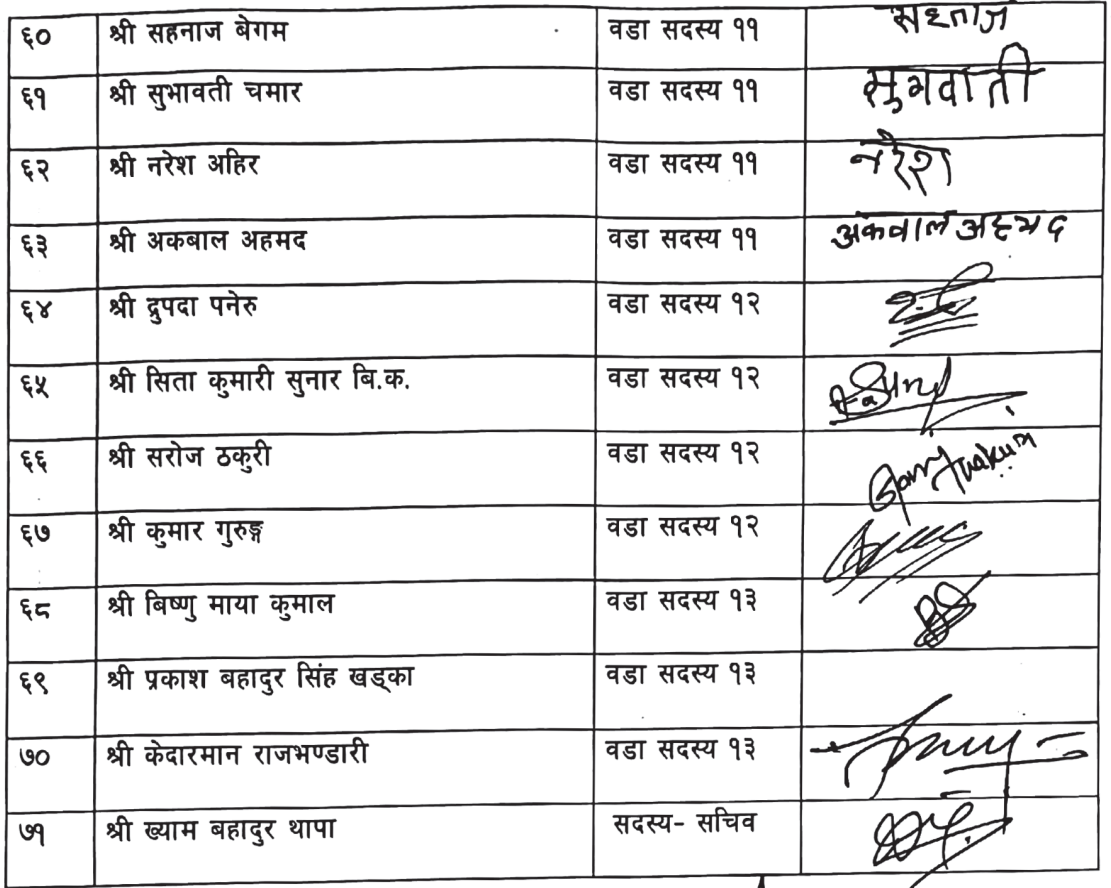 ६० श्री सहनाज बेगम वडा सदस्य ११ सहनाज
६१ श्री सुभावती चमार वडा सदस्य ११ सुभावती
६२ श्री नरेश अहिर वडा सदस्य ११ नरेश
६३ श्री अकबाल अहमद वडा सदस्य ११ अकवाल अहमद
६४ श्री द्रुपदा पनेरु वडा सदस्य १२
६५ श्री सिता कुमारी सुनार बि.क. वडा सदस्य १२
६६ श्री सरोज ठकुरी वडा सदस्य १२
६७ श्री कुमार गुरुङ्ग वडा सदस्य १२
६८ श्री बिष्णु माया कुमाल वडा सदस्य १३
६९ श्री प्रकाश बहादुर सिंह खड्का वडा सदस्य १३
७० श्री केदारमान राजभण्डारी वडा सदस्य १३
७१ श्री ख्याम बहादुर थापा सदस्य- सचिव